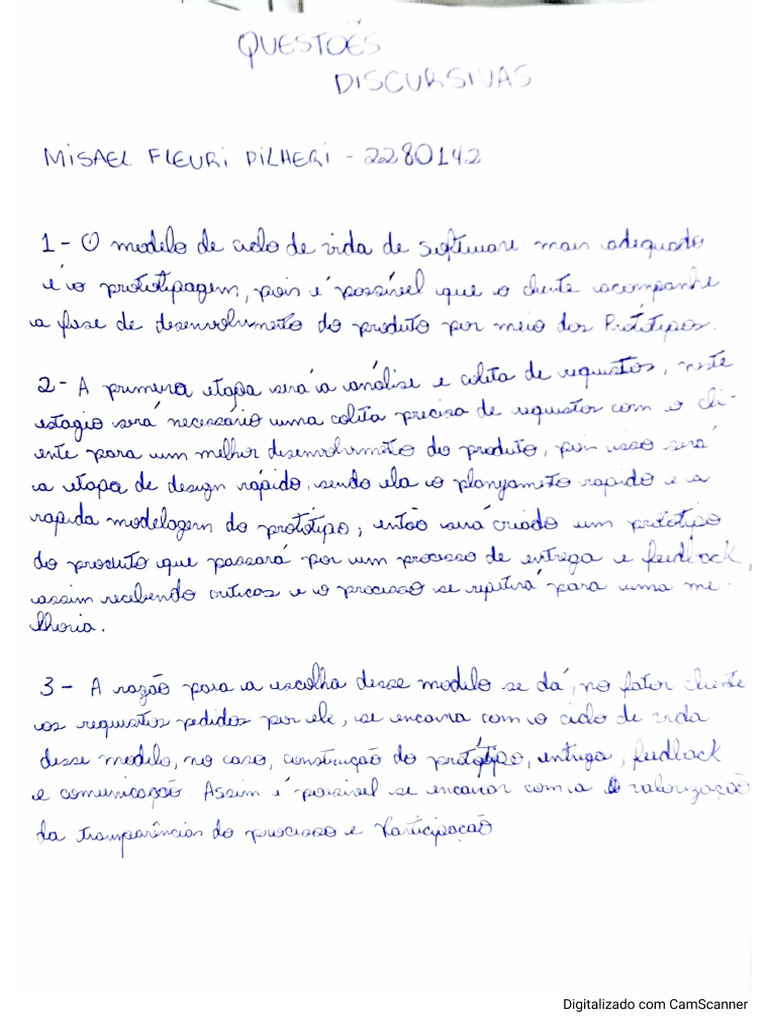 QUESTOẼS
DISCURSIVAS
MISAEL FLEURI DILHERI - 2280142
1 - O modelo de ciclo de vida de software mais adequado
é o prototipagem, pois é possível que o cliente acompanhe
a fase de desenvolvimento do produto por meio dos Prótótipos.
2 - A primeira etapa será a análise e colita de requisitos, neste
estagio será necessário uma colita precisa de requisitos com o cli-
ente para um melhor desenvolvimeto do produto, por isso será
a etapa de design rápido, sendo ela o planejameto rapido e a
rapida modelagem do protótipo; então será criado um protótipo
do produto que passará por um processo de entrega e feedback,
assim recebendo criticas e o processo se repitirá para uma me-
lhoria.
3 - A razão para a escolha desse modelo se dá, no fator cliente
os requisitos pedidos por ele, se encaixa com o ciclo de vida
desse modelo, no caso, construção do protótipo, entrega, feedback
e comunicação. Assim é possivel se encaixar com a valorização
da transparências do processo e Participação
Digitalizado com CamScanner